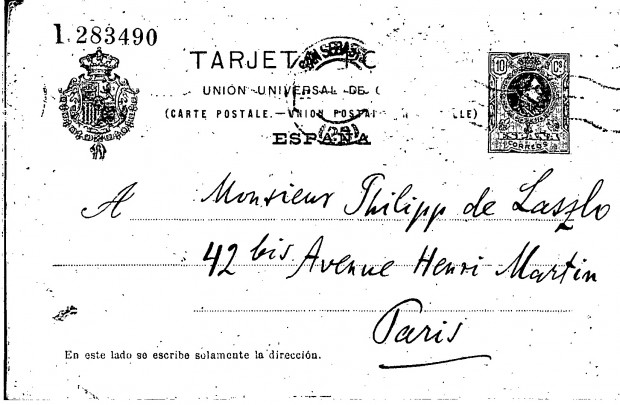 1.283490
TARJETA
UNIÓN UNIVERSAL DE
(CARTE POSTALE.—UNION POSTA LE)
ESPAÑA
10 Cs
CORREOS
A Monsieur Philipp de Laszlo
42 bis Avenue Henri Martin
Paris
En este lado se escribe solamente la dirección.